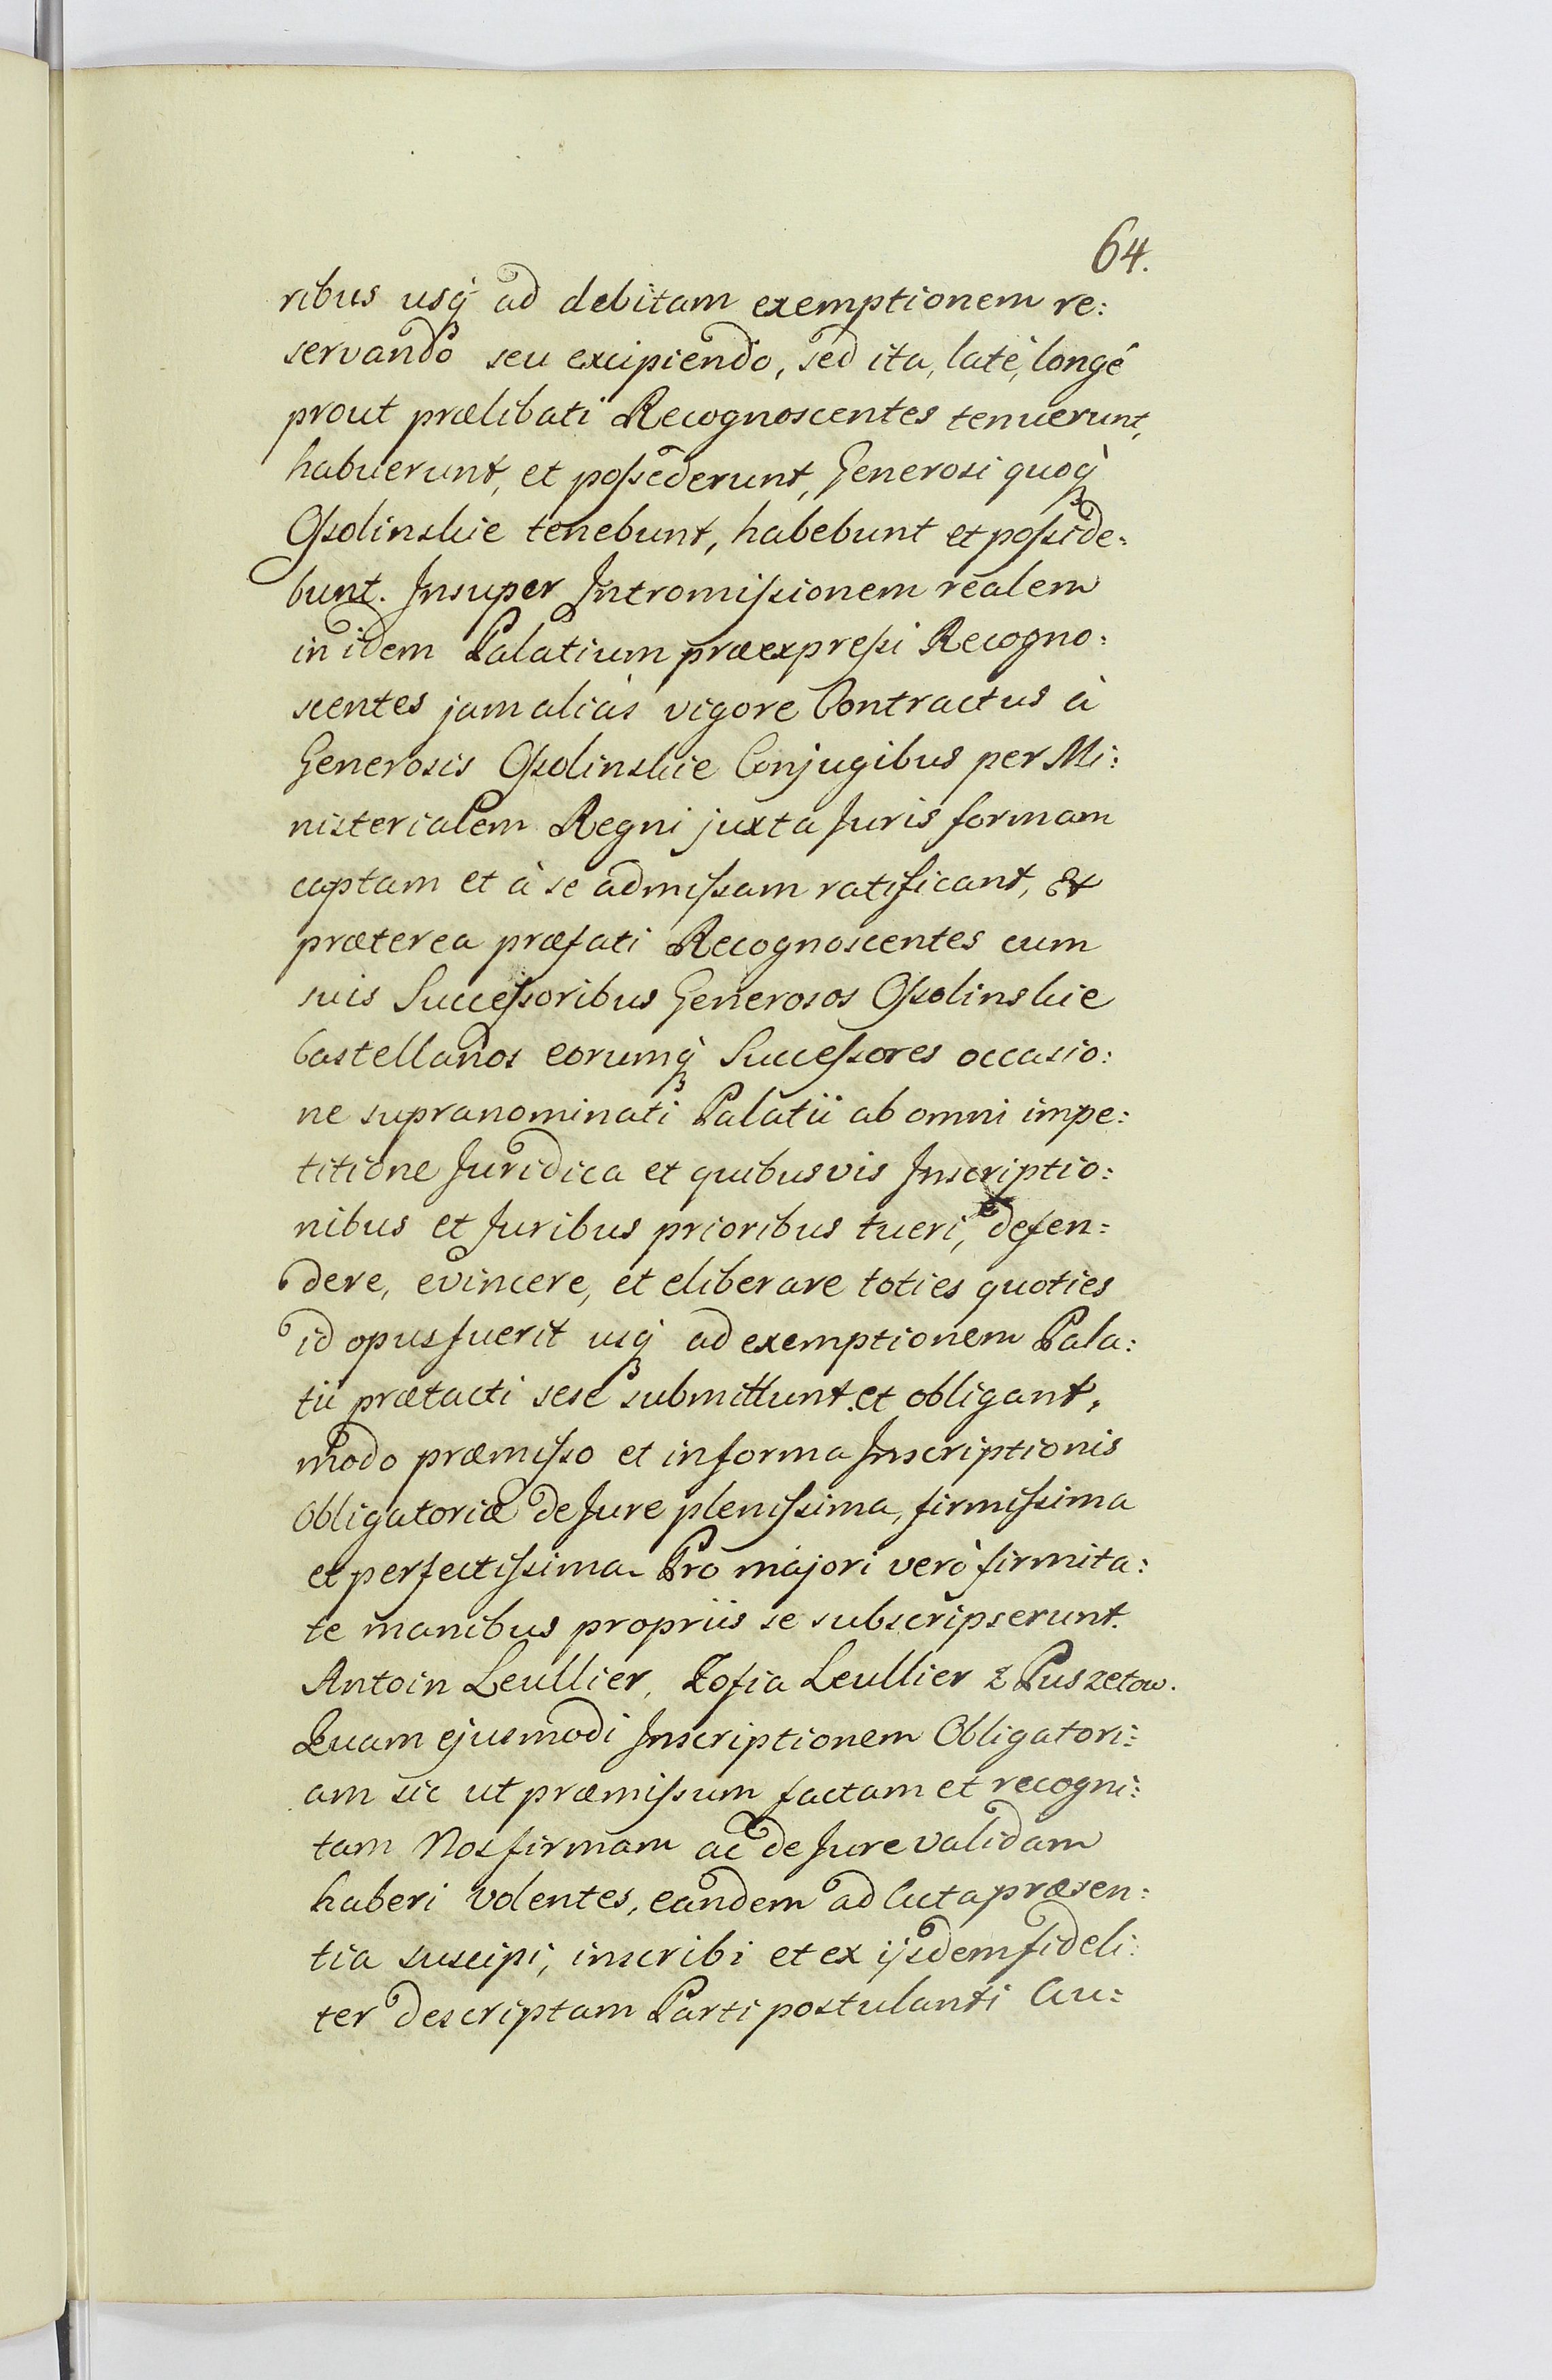 64.
ribus usq̀ ad debitam exemptionem re:
servando seu excipiendo, sed ita, latè, longé
prout prælibati Recognoscentes tenuerunt,
habuerunt, et poſsederunt, Generosi quoq̀
Oſsolinskie tenebunt, habebunt et poſside:
bunt. Insuper Intromiſsionem realem
in idem Palatium præexpreſsi Recogno:
scentes jam aliàs vigore Contractus à
Generosis Oſsolinskie Conjugibus per Mi:
nisterialem Regni juxta Juris formam
captam et à se admiſsam ratificant, et
præterea præfati Recognoscentes cum
suis Succeſsoribus Generosos Oſsolinskie
Castellanos eorumq̀ Succeſsores occasio:
ne supranominati Palatii ab omni impe:
titione Juridica et quibusvis Inscriptio:
nibus et Juribus prioribus tueri, defen:
dere, evincere, et eliberare toties quoties
id opus fuerit usq̀ ad exemptionem Pala:
tii prætacti sese submittunt et obligant,
modo præmiſso et in forma Inscriptionis
Obligatoriæ de Jure pleniſsima, firmiſsima
et perfectiſsima. Pro majori verò firmita:
te manibus propriis se subscripserunt.
Antoin Leullier, Zofia Leullier z Puszetow.
Quam ejusmodi Inscriptionem Obligatori:
am sic ut præmiſsum factam et recogni:
tam Nos firmam ac de Jure validam
haberi volentes, eandem ad Acta præsen:
tia suscipi, inscribi et ex ijsdem fideli:
ter descriptam Parti postulanti Au: